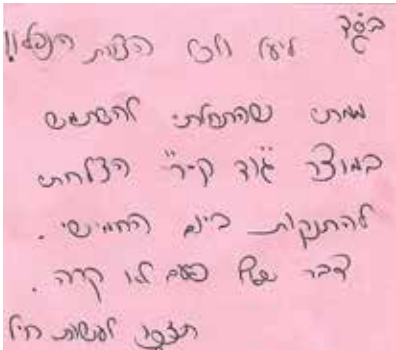 בס"ד
ליעל ולכל הצוות הנפלא!!
ממתי שהתחלתי להשתמש
במוצר "גוד קיר" הצלחתי
להתנקות ביום החמישי.
דבר שאף פעם לא קרה.
תמשיכו לעשות חיל